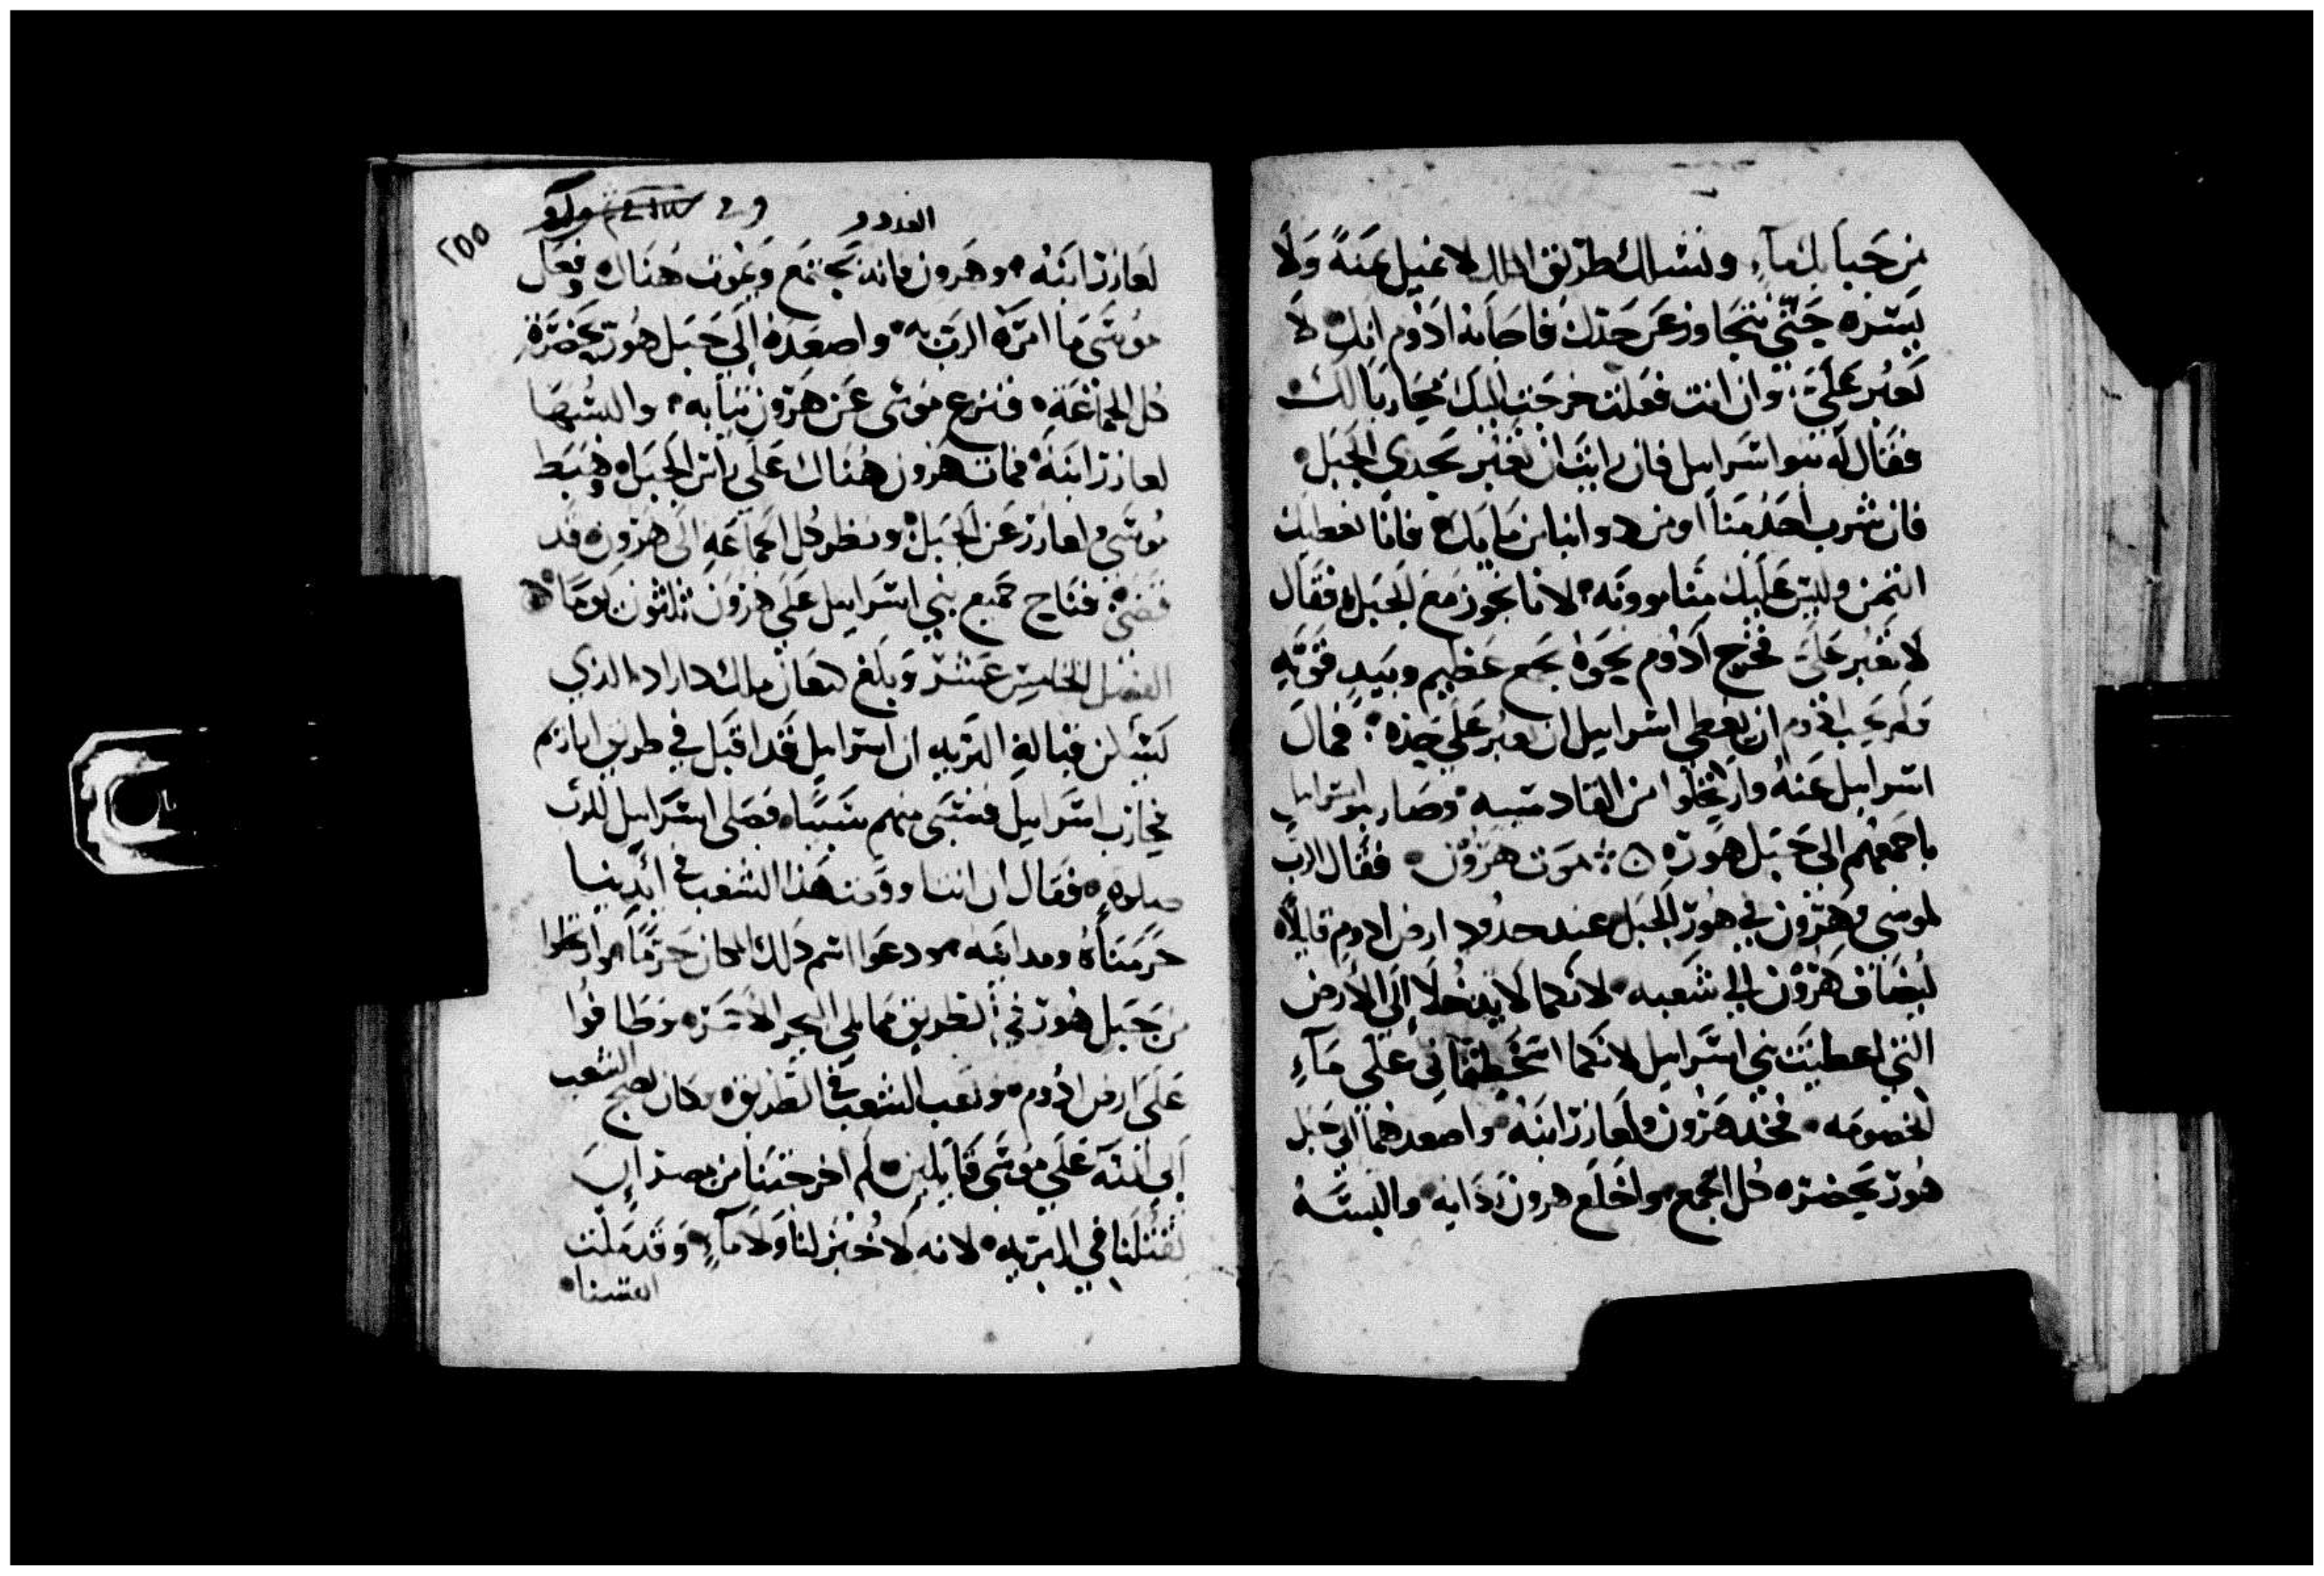 من جبابك ماء ونسلك طريق الملك لا نميل يمنة ولا
يسره حتي نتجاوز عن حدك فاجابه ادوم انك لا
تعبر علي وان انت فعلت خرجت اليك محاربا لك
فقال له بنو اسرايل فان رايت ان نعبر بحدي الجبل
فان شرب احد منا او من دوابنا من مايك فانا نعطيك
الثمن وليس عليك منا موونه لانا نجوز مع الجبل فقال
لا تعبر علي فخرج ادوم نحوه بجمع عظيم وبيد قويه
ولم يحب ادوم ان يعطي اسرايل ان يعبر علي حده فمال
اسرايل عنه وارتحلوا من القادسيه وصار بنو اسرايل
باجمعهم الي جبل هور موت هرون فقال الرب
لموسي وهرون في هور الجبل عند حدود ارض ادوم قايلا
ليضاف هرون الي شعبه لانكما لا تدخلا الي الارض
التي اعطيت بني اسرايل لانكما اسخطتماني علي ماء
الخصومه فخذ هرون ولعازر ابنه واصعدهما الي جبل
هور بحضره كل الجمع واخلع هرون ردايه والبسه
العدد
٢٥٥
لعازر ابنه وهرون فانه يجتمع ويموت هناك وفعل
موسي ما امره الرب به واصعده الي جبل هور بحضرة
كل الجماعه فنزع موسي عن هرون ثيابه والبسها
لعازر ابنه فمات هرون هناك علي راس الجبل وهبط
موسي ولعازر عن الجبل ونظر كل الجماعه الي هرون قد
قضي فناح جميع بني اسرايل علي هرون ثلثون يوما
الفصل الخامس عشر وبلغ كنعان ملك داراد الذي
كان يسكن قبالة البريه ان اسرايل قد اقبل في طريق
فحارب اسرايل فسبي منهم سبيا فصلي اسرايل للرب
صلوه فقال ان انت دفعت هذا الشعب في ايدينا
حرمناه ومداينه ودعوا اسم ذلك المكان حرما وارتحلوا
من جبل هور في الطريق مما يلي البحر الاحمر وطافوا
علي ارض ادوم وتعب الشعب في الطريق وكان يضج الشعب
الي الله علي موسي قايلين لم اخرجتنا من مصر
لتقتلنا في البريه لانه لا خبز لنا ولا ماء وقد ملت
انفسنا